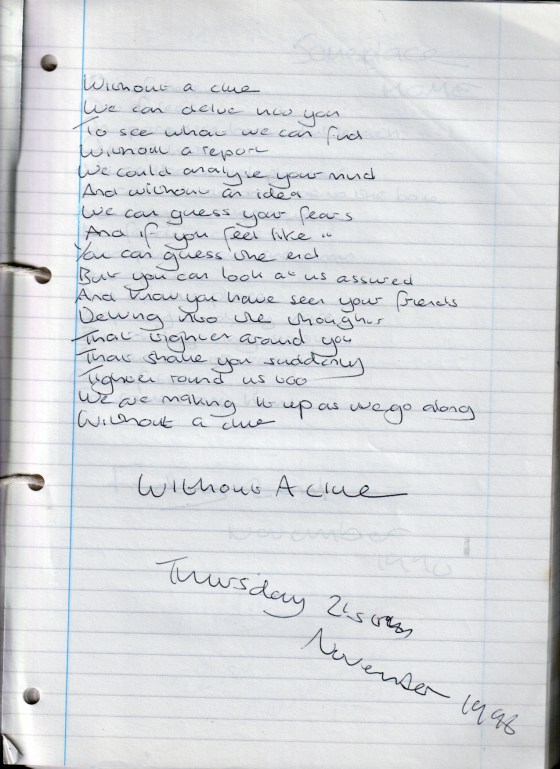 Without a clue
We can delve into you
To see what we can find
Without a report
We could analyse your mind
And without an idea
We can guess your fears
And if you feel like it
You can guess the end
But you can look at us assured
And know you have seen your friends
Delving into the thoughts
That tighten around you
That shake you suddenly
Tighten round us too
We are making it up as we go along
Without a clue
Without A clue
Thursday 21st
November 1996
Someplace
HOME
November